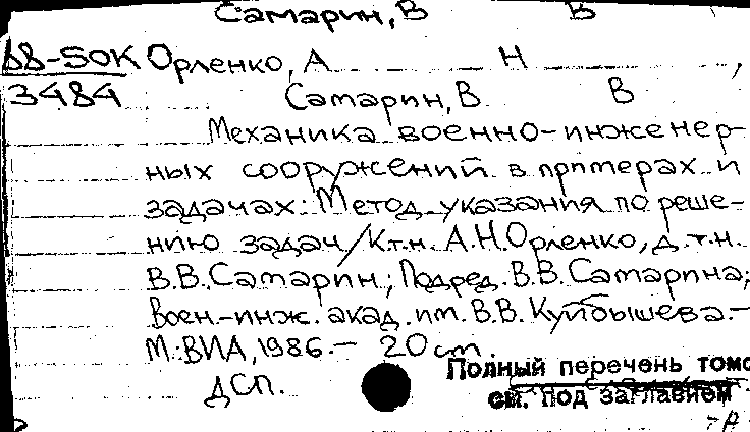 Самарин, В В
88-50К Орленко, А Н ,
3484 Самарин, В. В
Механика военно-инженер-
ных сооружений в примерах и
задачах: Метод. указания по реше-
нию задач / К.т.н. А.Н.Орленко, д.т.н.
В.В.Самарин; Под ред. В.В.Самарина;
Воен.-инж. акад. им. В.В.Куйбышева.-
М.:ВИА, 1986.- 20 см.
ДСП.
Полный перечень томо
см. под заглавием